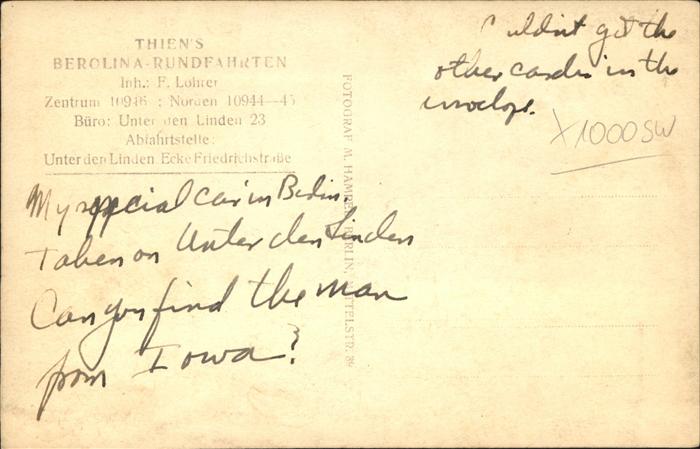 THIEN'S
BEROLINA-RUNDFAHRTEN
Inh.: F. Lohrer
Zentrum 10946 ; Norden 10944—45
Büro: Unter den Linden 23
Abfahrtstelle:
Unter den Linden Ecke Friedrichstraße
Couldn't get the
other cards in the
envelope.
X1000SW
FOTOGRAF M. HAMPEL, BERLIN, 89
My special car in Berlin.
Taken on Unter den Linden
Can you find the man
from Iowa?